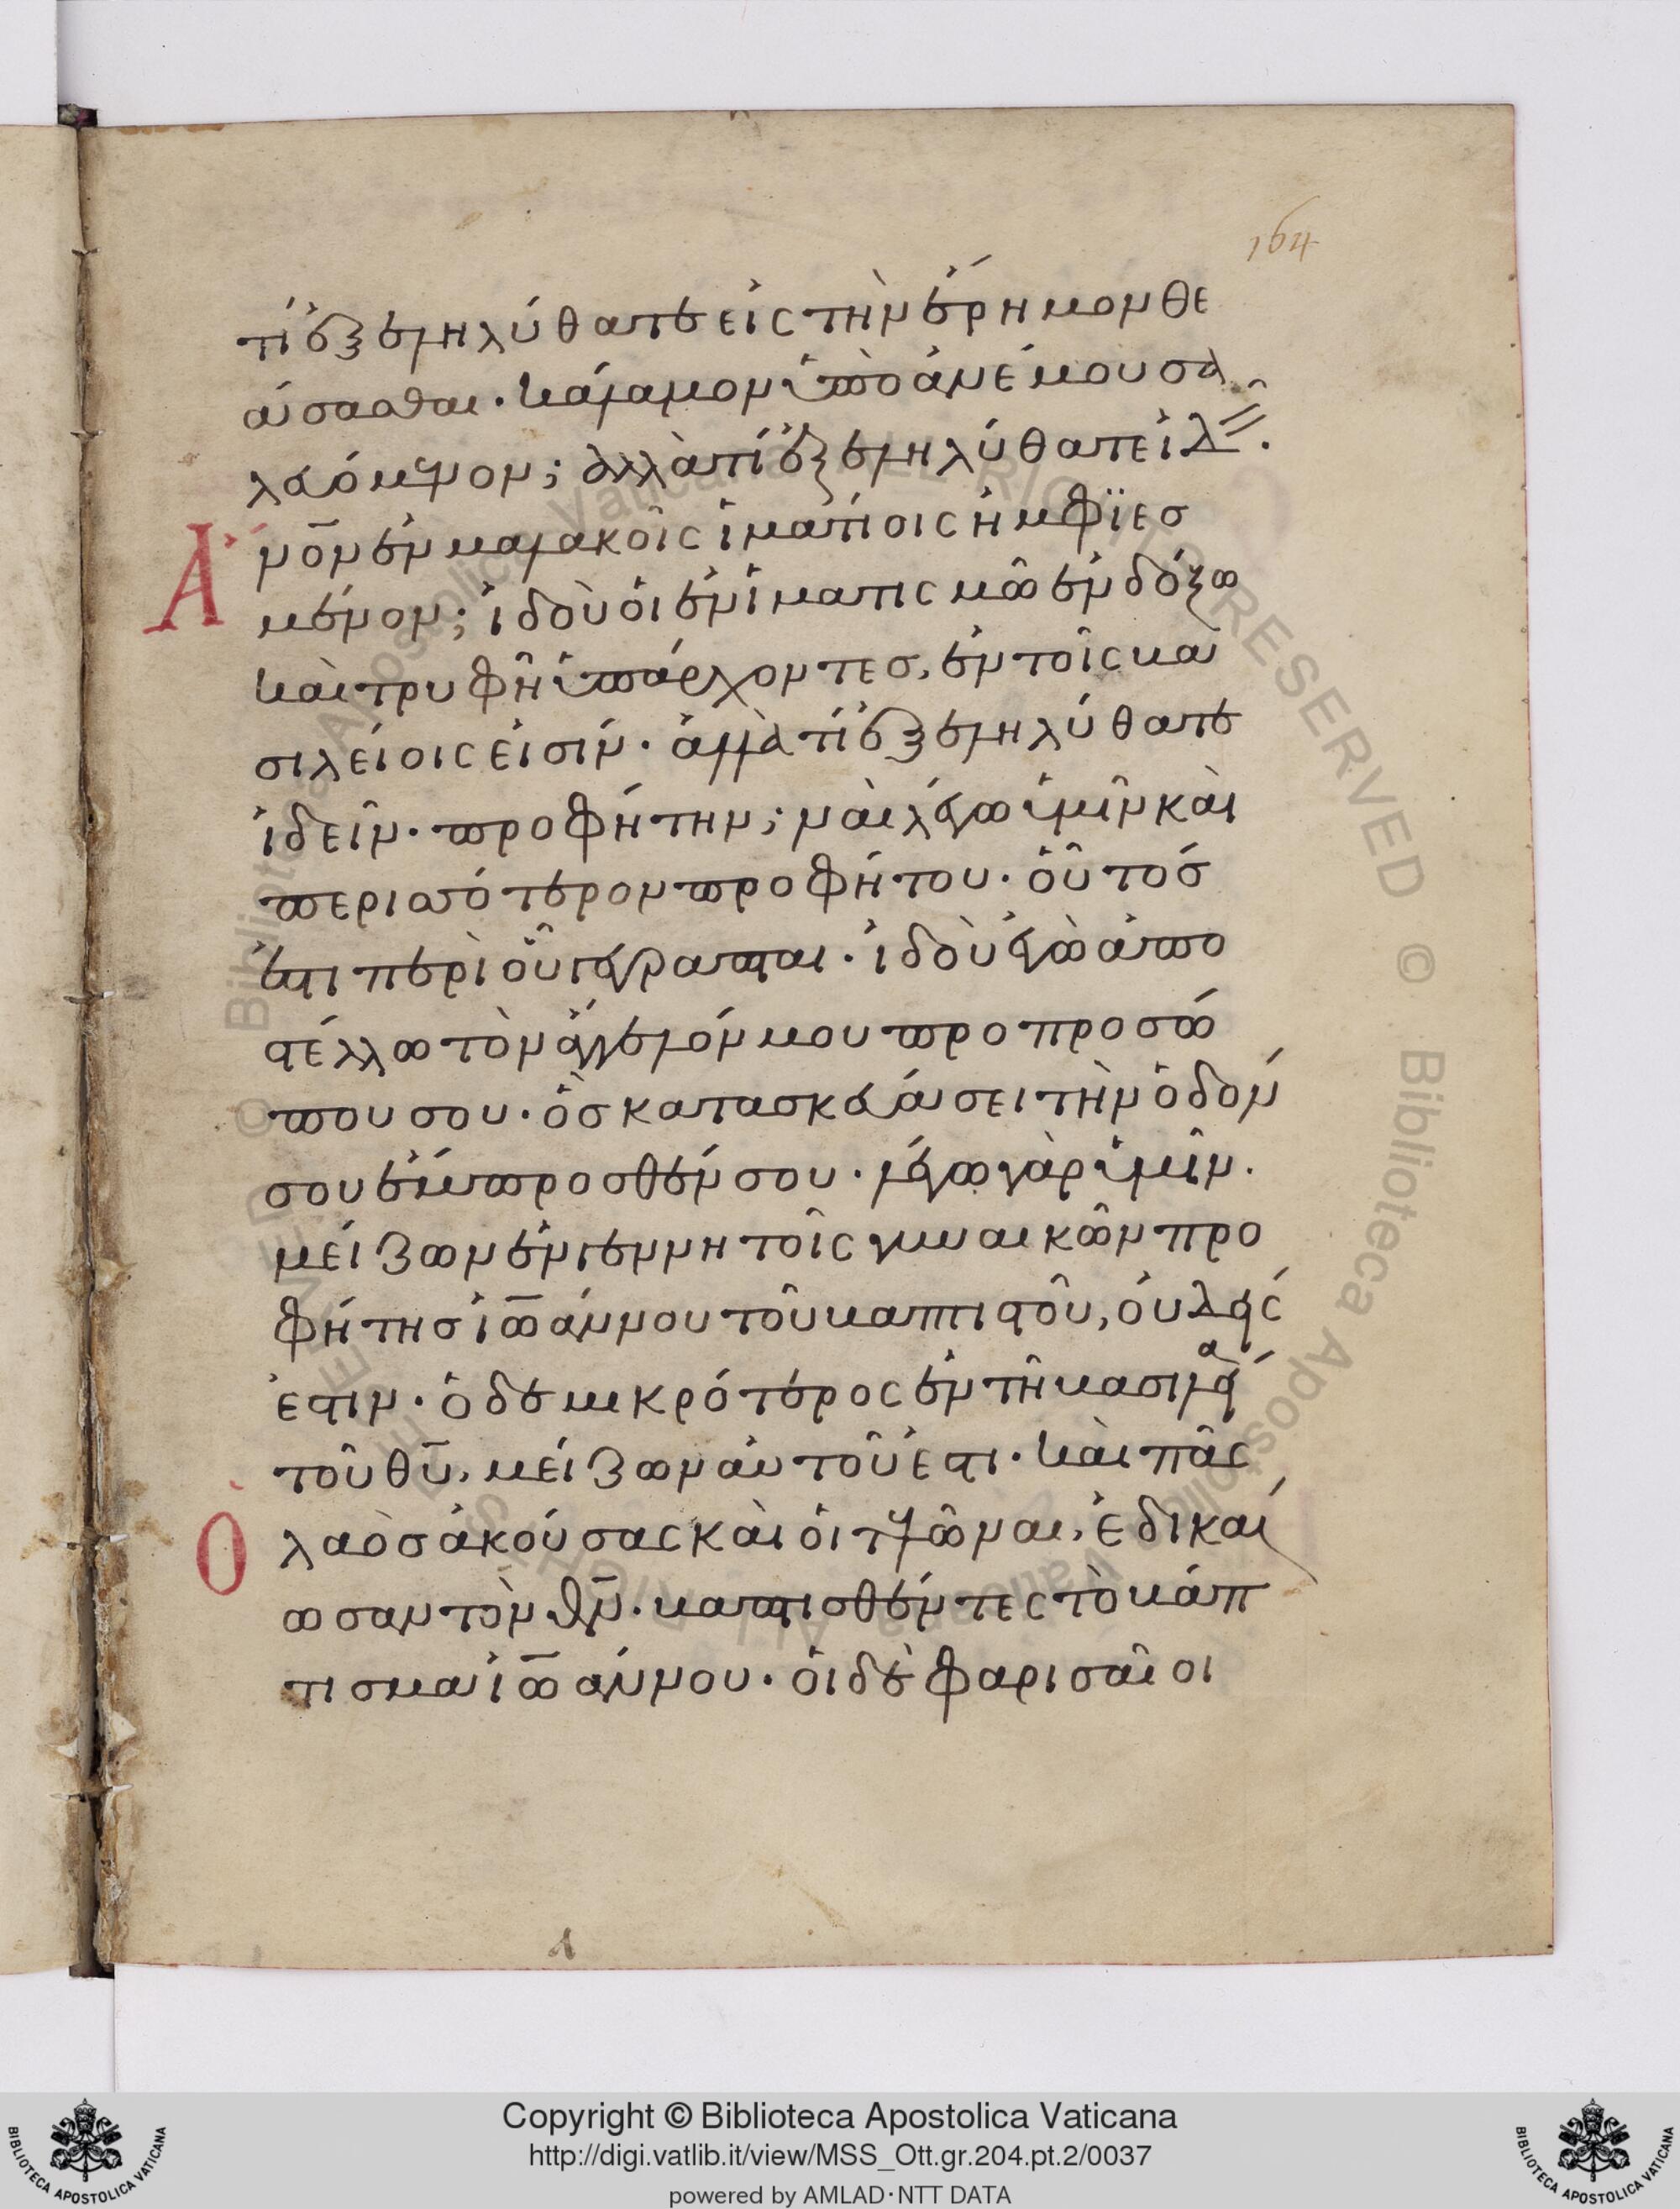 164
τί ἐξεληλύθατε εἰς τὴν ἔρημον θε
άσασθαι· κάλαμον ὑπὸ ἀνέμου σα
λευόμενον; ἀλλὰ τί ἐξεληλύθατε ἰδεῖν·
Ἄν̅ο̅ν̅ ἐν μαλακοῖς ἱματίοις ἠμφϊεσ
μένον; ἰδοὺ οἱ ἐν ἱματισμῶ ἐνδόξω
καὶ τρυφῆ ὑπάρχοντες, ἐν τοῖς βα
σιλείοις εἰσίν· ἀλλὰ τί ἐξεληλύθατε
ἰδεῖν· προφήτην; ναὶ λέγω ὑμῖν καὶ
περισσότερον προφήτου· οὗτός
ἐστι περὶ οὗ γέγραπται· ἰδοὺ ἐγὼ ἀπο
στέλλω τὸν ἄγγελόν μου προ προσώ
που σου· ὃς κατασκευάσει τὴν ὁδόν
σου ἔμπροσθέν σου· λέγω γὰρ ὑμῖν·
μείζων ἐν γεννητοῖς γυναικῶν προ
φήτης ἰω̅άννου τοῦ βαπτιστοῦ, οὐδείς
ἐστιν· ὁ δὲ μικρότερος ἐν τῆ βασιλεία
τοῦ θ̅υ̅, μείζων αὐτοῦ ἐστι· καὶ πᾶς
Ὁ λαὸς ἀκούσας καὶ οἱ τελῶναι, ἐδικαί
ωσαν τὸν θ̅ν̅· βαπτισθέντες τὸ βάπ
τισμα ἰω̅άννου· οἱ δὲ φαρισαῖοι
Copyright © Biblioteca Apostolica Vaticana
http://digi.vatlib.it/view/MSS_Ott.gr.204.pt.2/0037
powered by AMLAD·NTT DATA